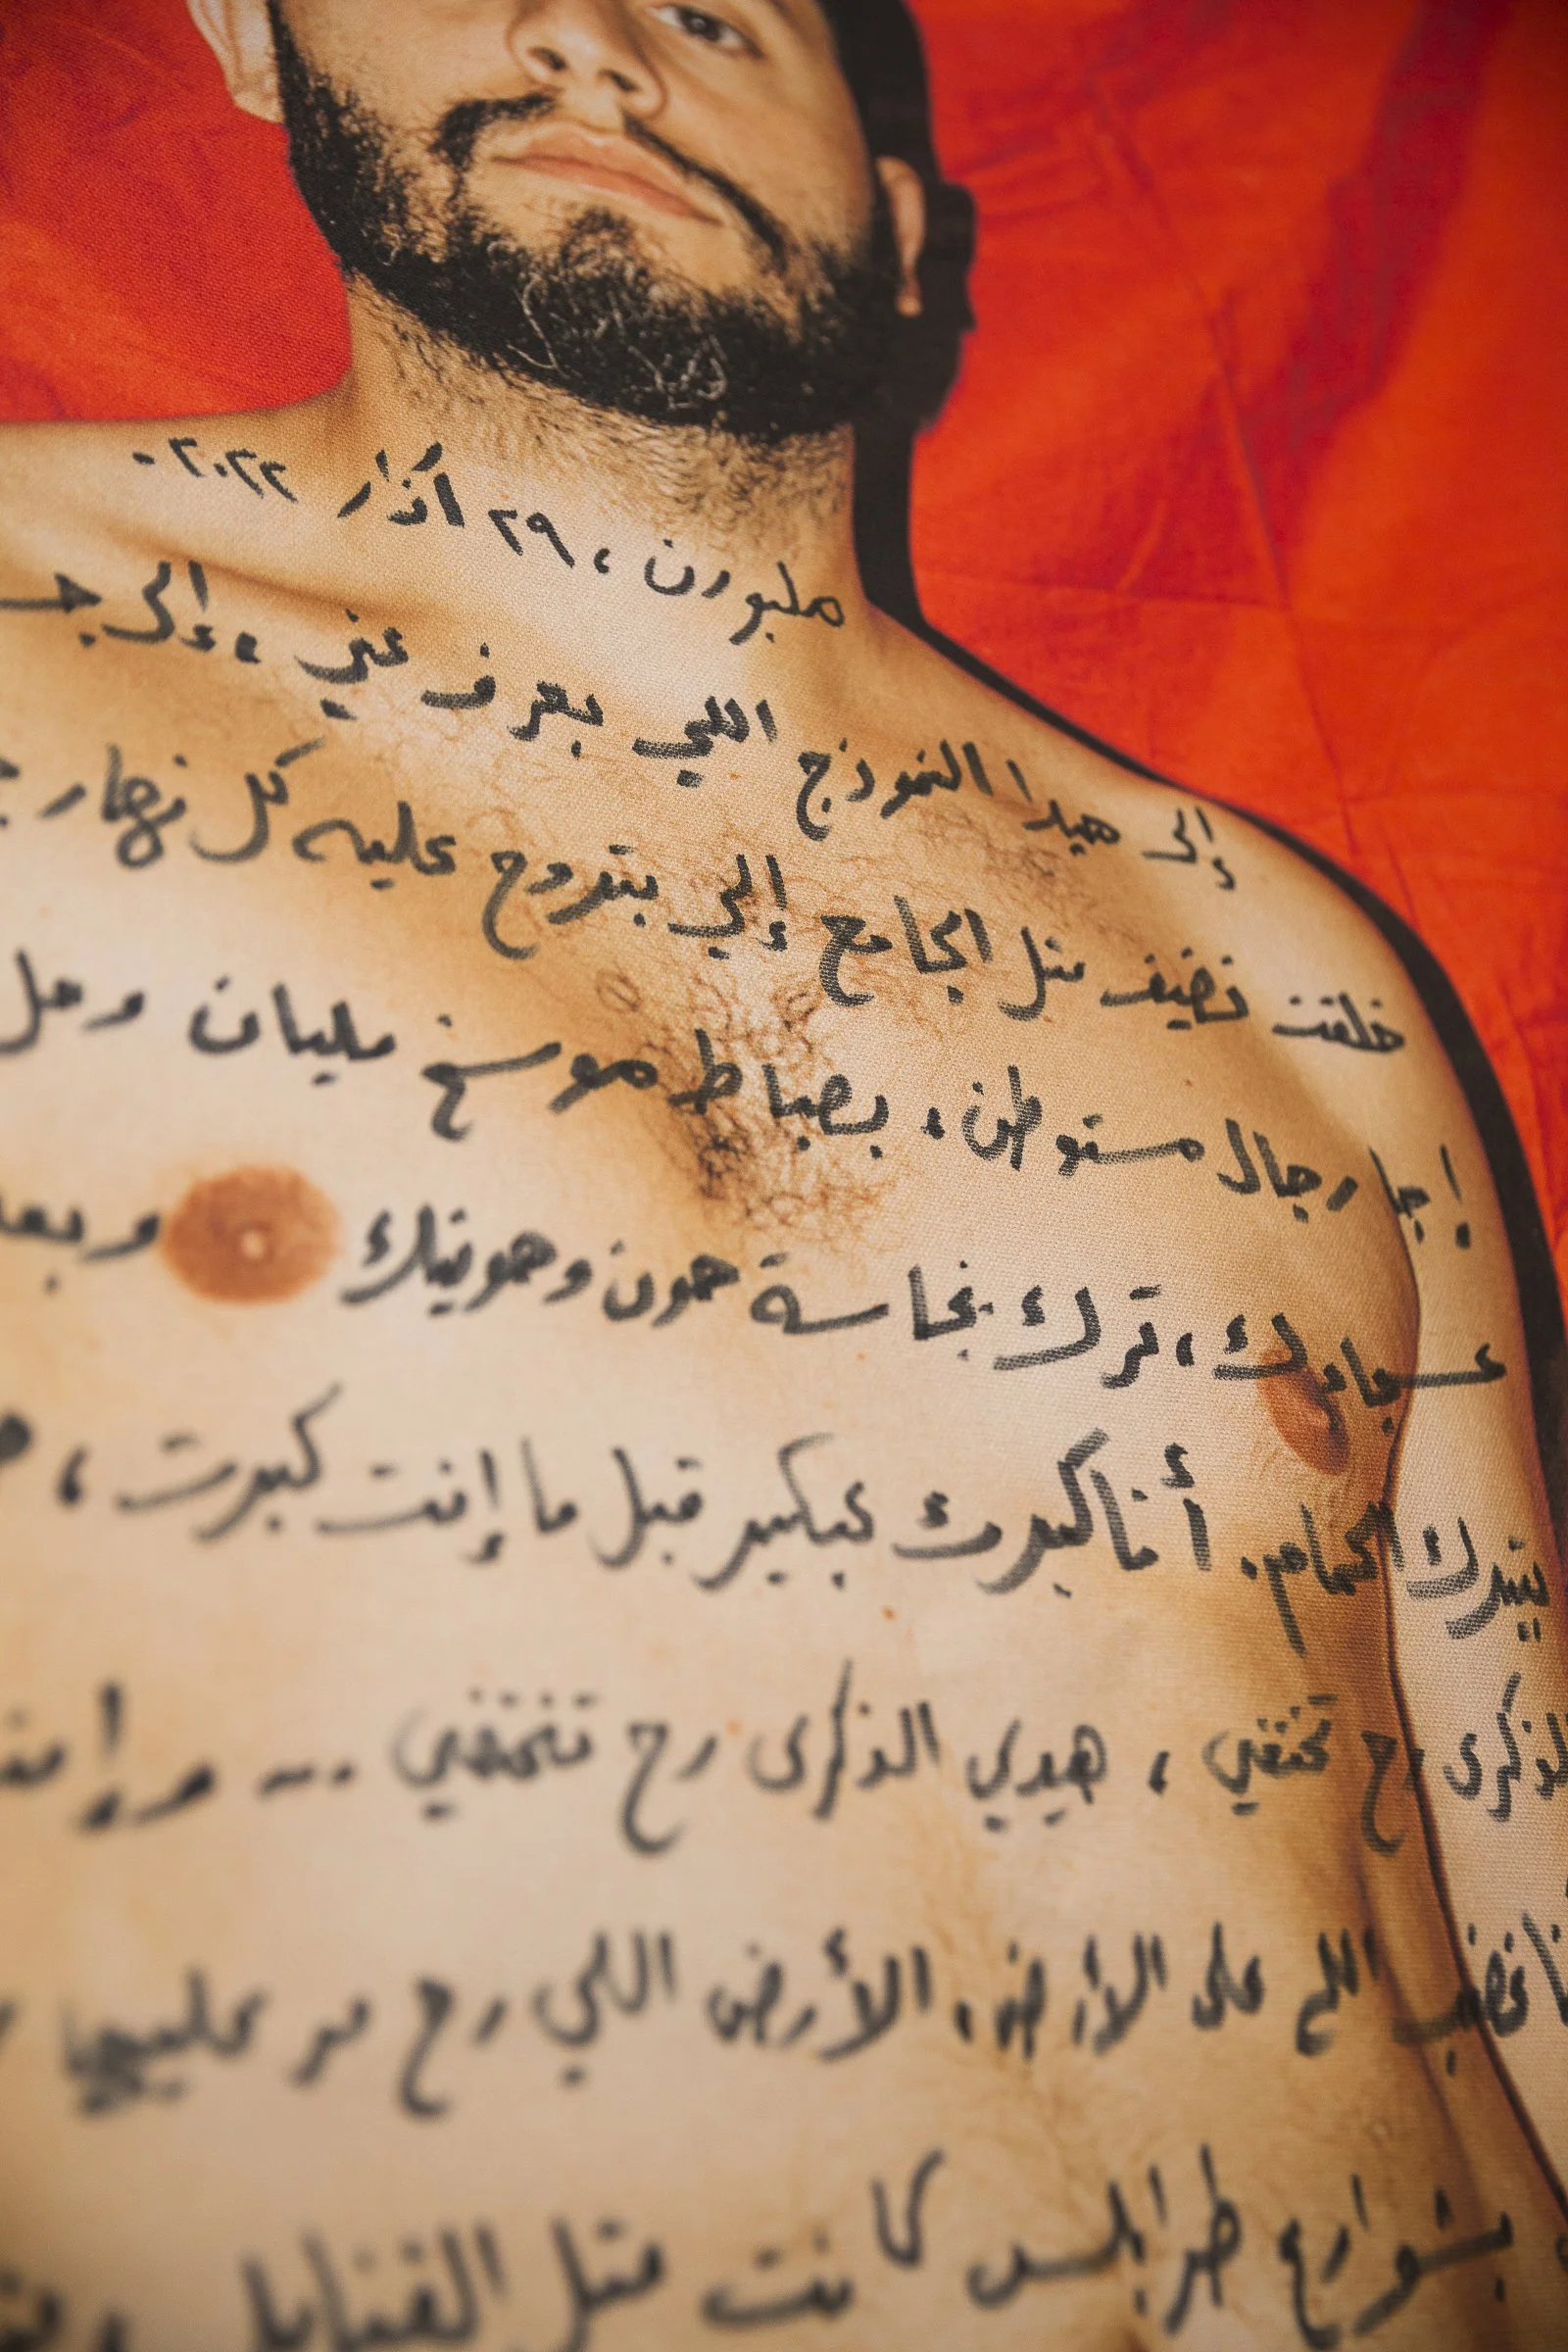 ملبورن ، ٢٩ آذار ٢٠٢٢ -
إلى هيدا النموذج اللي بعرف عني ، إلى
خلقت نضيف متل الجامع إلي بتروح عليه كل نهار
إجا رجال مستوطن ، بصباط موسخ مليان وحل
ترك نجاسة هون وهونيك وبعد
بيترك الحمام . أنا كبرت عبكير قبل ما إنت كبرت ،
الذكرى رح تختفي ، هيدي الذكرى رح تختفي ... وإنت
غضب الله على الأرض . الأرض اللي رح مر عليها
بشوارع طرابلس كانت متل القنابل